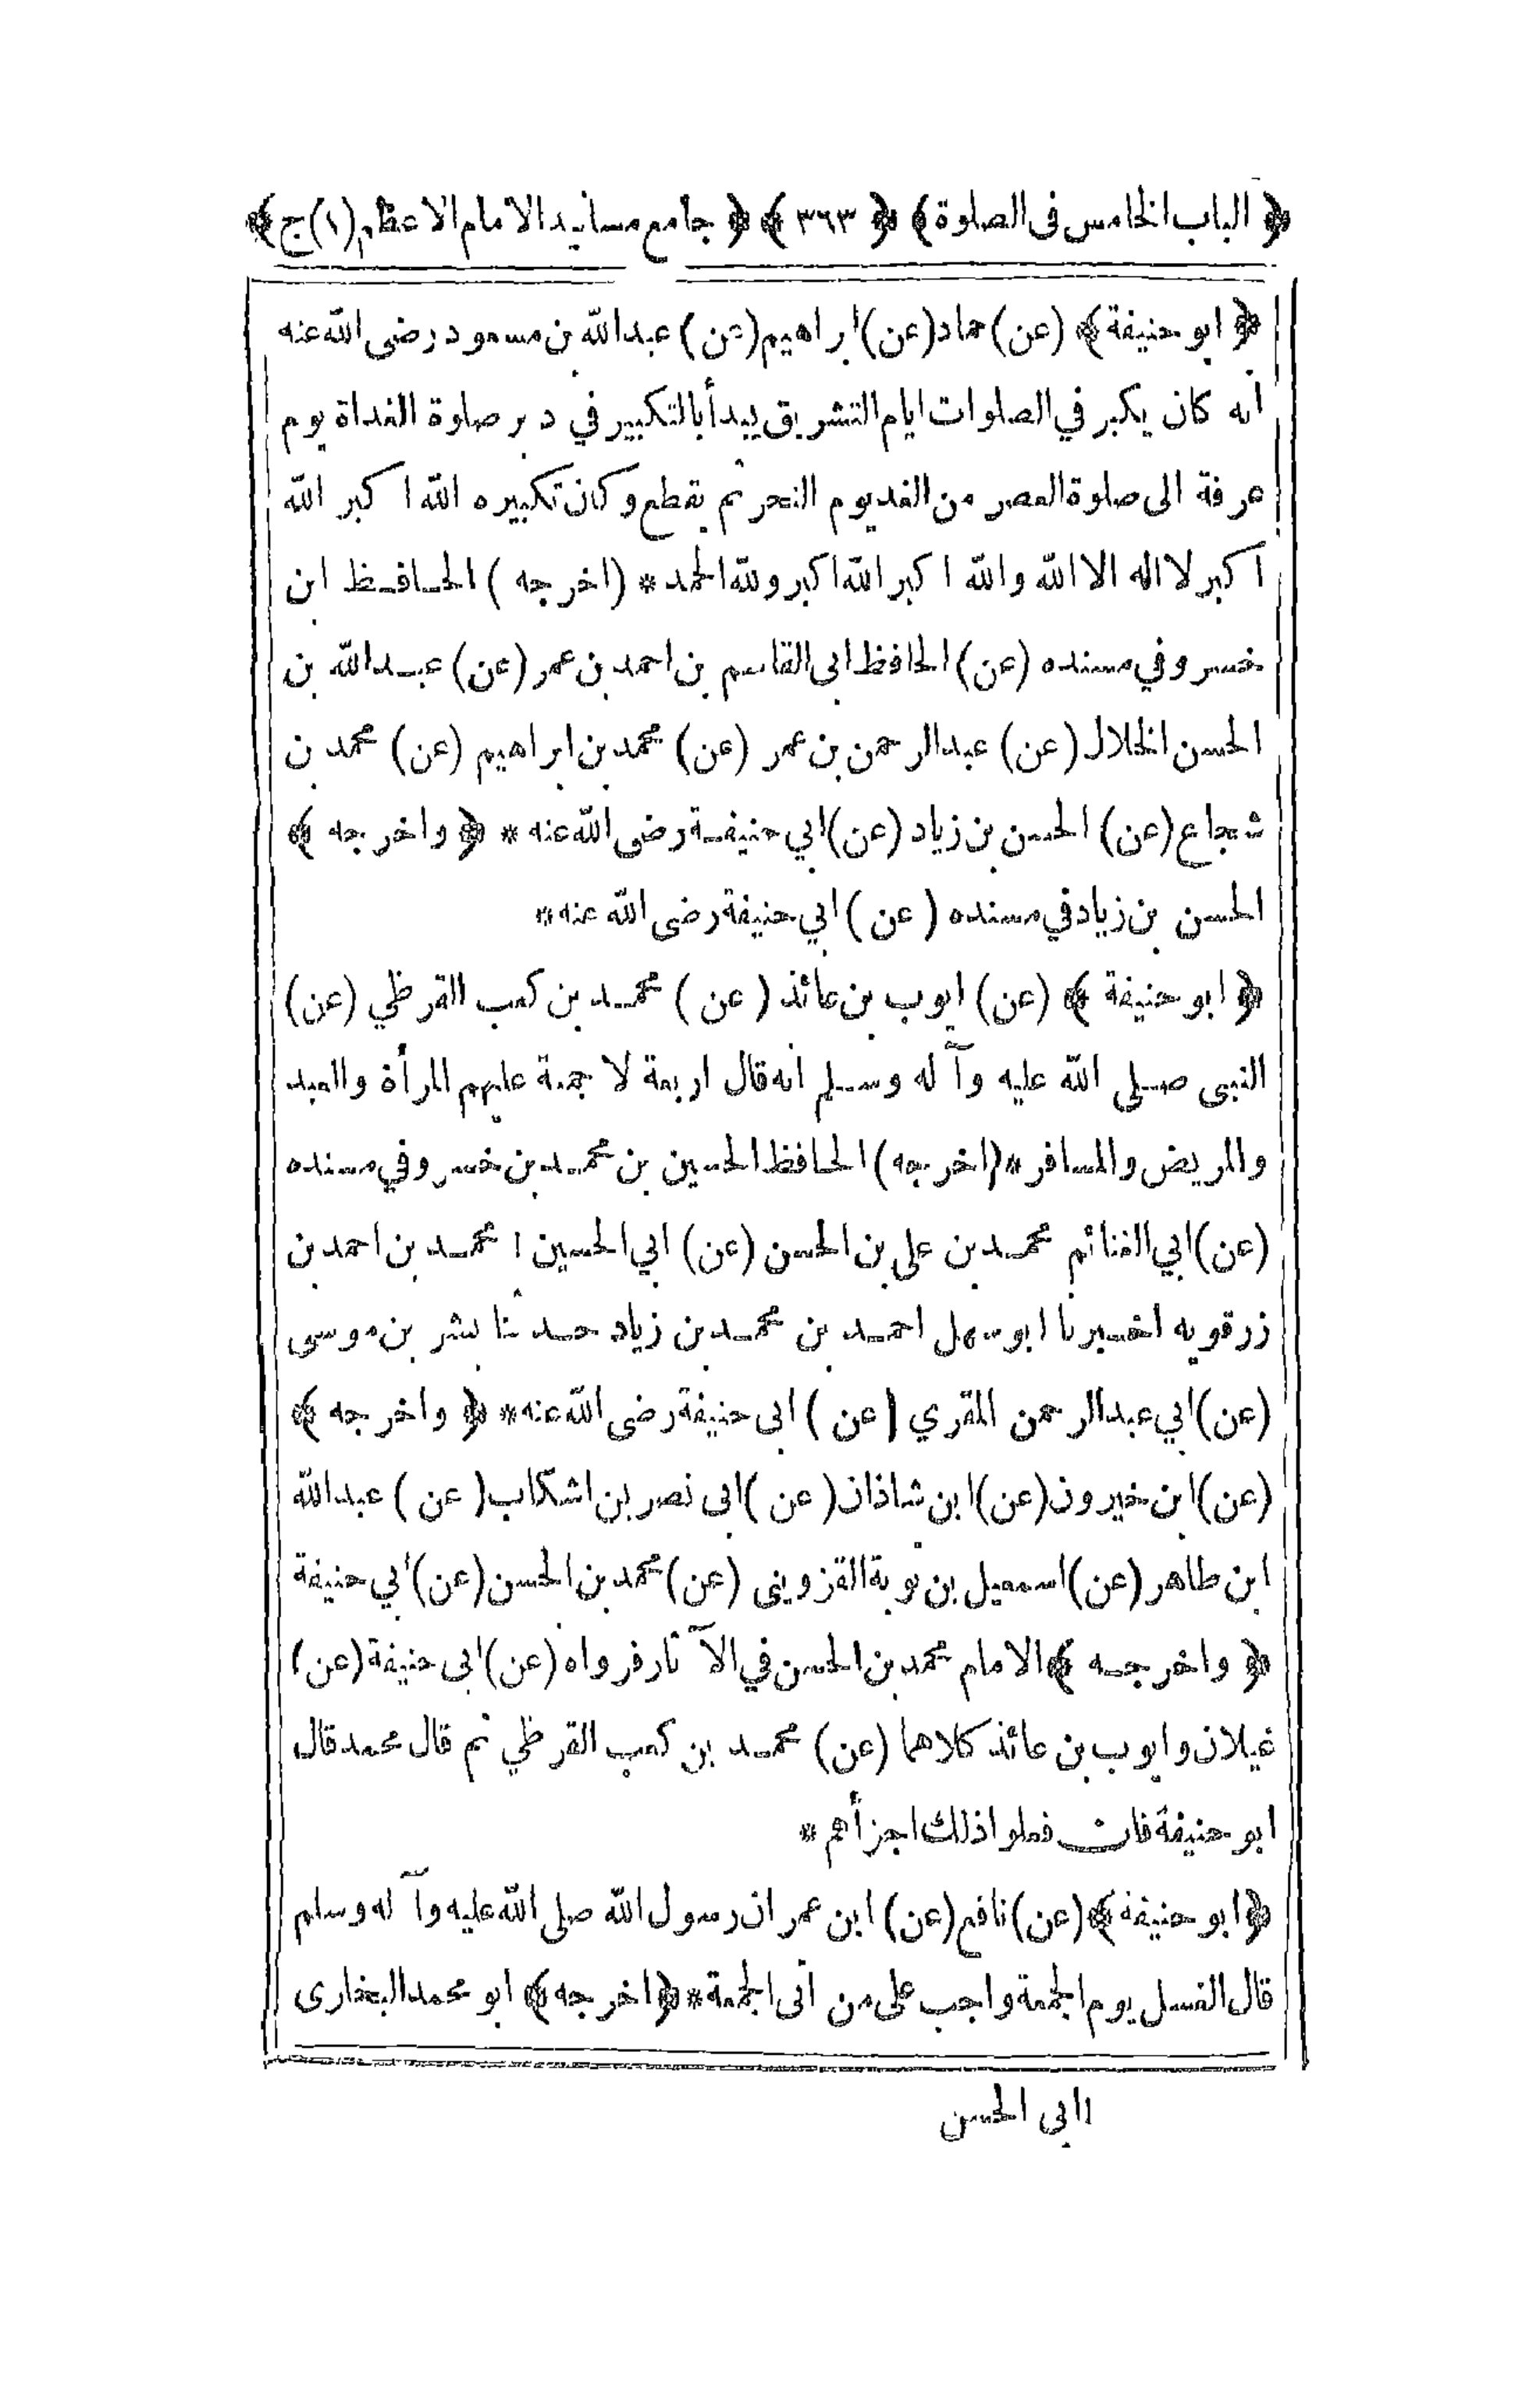 ﴿ الباب الخامس فى الصلوة ﴾ ﴿ ٣٦٣ ﴾ ﴿ جامع مسانيد الامام الاعظم (١) ج ﴾
﴿ ابو حنيفة ﴾ (عن) حماد (عن) ابراهيم (عن) عبدالله بن مسعود رضى الله عنه
انه كان يكبر في الصلوات ايام التشريق يبدأ بالتكبير في دبر صلوة الغداة يوم
عرفة الى صلوة العصر من الغد يوم النحر ثم يقطع وكان تكبيره الله اكبر الله
اكبر لا اله الا الله والله اكبر الله اكبر ولله الحمد * (اخرجه) الحافظ ابن
خسرو في مسنده (عن) الحافظ ابى القاسم بن احمد بن عمر (عن) عبدالله بن
الحسن الخلال (عن) عبدالرحمن بن عمر (عن) محمد بن ابراهيم (عن) محمد بن
شجاع (عن) الحسن بن زياد (عن) ابي حنيفة رضى الله عنه * ﴿ واخرجه ﴾
الحسن بن زياد في مسنده (عن) ابي حنيفة رضى الله عنه *
﴿ ابو حنيفة ﴾ (عن) ايوب بن عائذ (عن) محمد بن كعب القرظي (عن)
النبى صلى الله عليه وآله وسلم انه قال اربعة لا جمعة عليهم المرأة والعبد
والمريض والمسافر * (اخرجه) الحافظ الحسين بن محمد بن خسرو في مسنده
(عن) ابي الغنائم محمد بن على بن الحسن (عن) ابي الحسين ١ محمد بن احمد بن
زرقويه اخبرنا ابو سهل احمد بن محمد بن زياد حدثنا بشر بن موسى
(عن) ابي عبدالرحمن المقري (عن) ابى حنيفة رضى الله عنه * ﴿ واخرجه ﴾
(عن) ابن خيرون (عن) ابن شاذان (عن) ابى نصر بن اشكاب (عن) عبدالله
ابن طاهر (عن) اسمعيل بن توبة القزوينى (عن) محمد بن الحسن (عن) ابي حنيفة
﴿ واخرجه ﴾ الامام محمد بن الحسن في الآثار فرواه (عن) ابى حنيفة (عن)
غيلان وايوب بن عائذ كلاهما (عن) محمد بن كعب القرظي ثم قال محمد قال
ابو حنيفة فان فعلوا ذلك اجزأهم *
﴿ ابو حنيفة ﴾ (عن) نافع (عن) ابن عمر ان رسول الله صلى الله عليه وآله وسلم
قال الغسل يوم الجمعة واجب على من اتى الجمعة * ﴿ اخرجه ﴾ ابو محمد البخارى
١ ابى الحسن